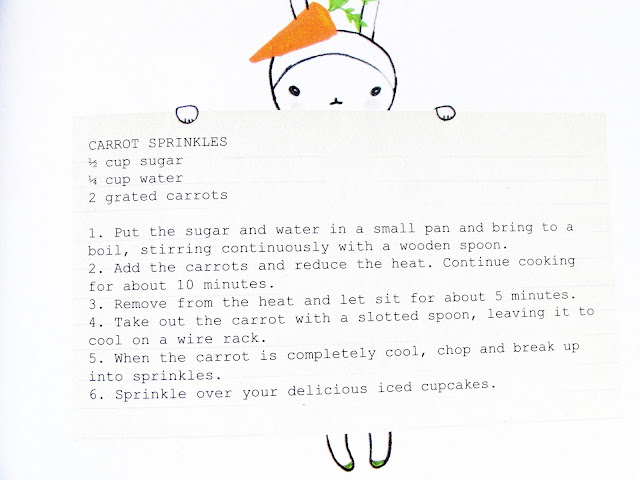 CARROT SPRINKLES
½ cup sugar
¼ cup water
2 grated carrots
1. Put the sugar and water in a small pan and bring to a
boil, stirring continuously with a wooden spoon.
2. Add the carrots and reduce the heat. Continue cooking
for about 10 minutes.
3. Remove from the heat and let sit for about 5 minutes.
4. Take out the carrot with a slotted spoon, leaving it to
cool on a wire rack.
5. When the carrot is completely cool, chop and break up
into sprinkles.
6. Sprinkle over your delicious iced cupcakes.